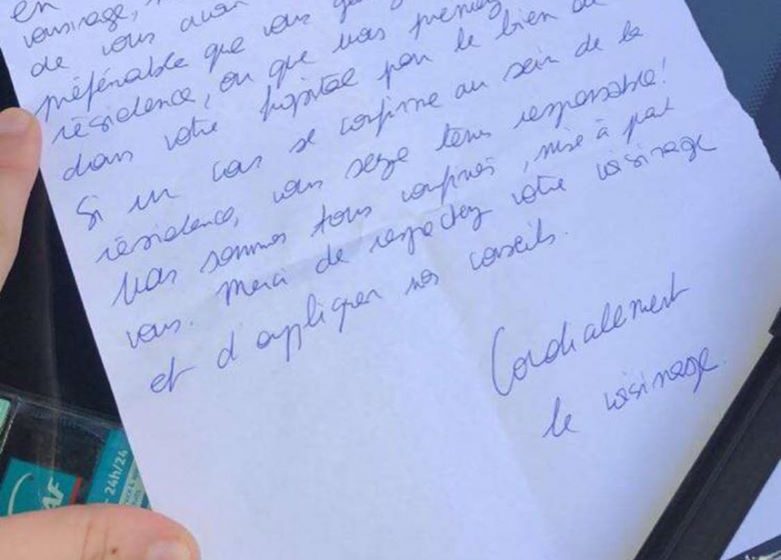 en
voisinage,
de vous avoir
préférable que vous
résidence, ou que vous preniez
dans votre hopital pour le bien de
Si un cas se confirme au sein de la
résidence, vous serez tenus responsable!
Nous sommes tous confinés, mise à part
vous. Merci de respectez votre voisinage
et d'appliquer nos conseils.
Cordialement
le voisinage.
AF
24h/24